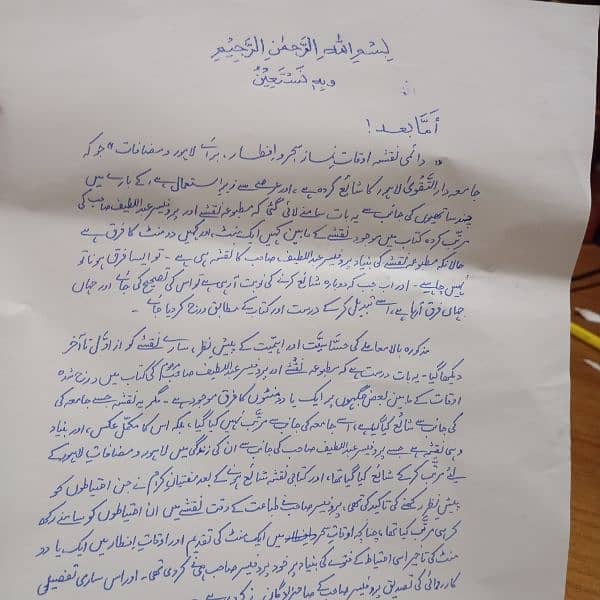 بِسْمِ اللّٰهِ الرَّحْمٰنِ الرَّحِيْمِ
وبِهٖ نَسْتَعِيْنُ
أمَّا بعد !
"دائمی نقشہ اوقاتِ نماز، سحر و افطار، برائے لاہور و مضافات" جو کہ
جامعہ دار التقویٰ لاہور کا شائع کردہ ہے، اور عرصے سے زیرِ استعمال ہے، کے بارے میں
چند ساتھیوں کی جانب سے یہ بات سامنے لائی گئی کہ مطبوعہ نقشے اور پروفیسر عبداللطیف صاحب کی
مرتب کردہ کتاب میں موجود نقشے کے مابین کہیں ایک منٹ، اور کہیں دو منٹ کا فرق ہے
حالانکہ مطبوعہ نقشے کی بنیاد پروفیسر عبداللطیف صاحب کا نقشہ ہی ہے۔ تو ایسا فرق ہونا تو
نہیں چاہیے۔ اور اب جب کہ دوبارہ شائع کرنے کی نوبت آ رہی ہے تو اس کی تصحیح کی جائے اور جہاں
جہاں فرق آ رہا ہے، اسے تبدیل کر کے درست اور کتاب کے مطابق درج کر دیا جائے۔
مذکورہ بالا معاملے کی حسّاسیّت اور اہمیّت کے پیشِ نظر، سارے نقشے کو از اوّل تا آخر
دیکھا گیا۔ یہ بات درست ہے کہ مطبوعہ نقشے اور پروفیسر عبداللطیف صاحب کی کتاب میں درج شدہ
اوقات کے مابین بعض جگہوں پر ایک یا دو منٹوں کا فرق موجود ہے۔ مگر یہ نقشہ جسے جامعہ کی
جانب سے شائع کیا گیا ہے، اسے جامعہ کی جانب سے مرتب نہیں کیا گیا، بلکہ اس کا مکمل عکس، اور بنیاد
وہی نقشہ ہے جسے پروفیسر عبداللطیف صاحب کی جانب سے ان کی زندگی میں لاہور و مضافاتِ لاہور کے
لیے مرتب کر کے شائع کیا گیا تھا، اور کتابی نقشہ شائع ہونے کے بعد مفتیانِ کرام نے جن احتیاطوں کو
پیشِ نظر رکھنے کی تاکید کی تھی، پروفیسر صاحب نے طباعت کے وقت نقشے میں ان احتیاطوں کو سامنے رکھ
کر ہی مرتب کیا تھا، چنانچہ اوقاتِ سحر میں ایک منٹ کی تقدیم اور اوقاتِ افطار میں ایک یا دو
منٹ کی تاخیر اسی احتیاط کے فتوے کی بنیاد پر خود پروفیسر صاحب ہی نے کر دی تھی۔ اور اس ساری تفصیلی
کارروائی کی تصدیق پروفیسر صاحب کے صاحبزادگان نے کر دی ہے